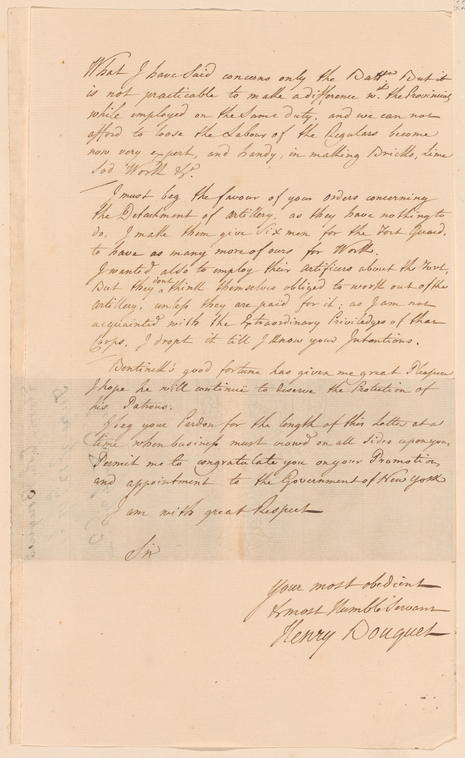 What I have said concerns only the Batt.on But it
is not practicable to make a difference wth the Provincials
while employed on the Same duty, and we can not
afford to loose the Labour of the Regulars become
now very expert, and handy, in making Bricks, Lime
Sod Work &c.
I must beg the favour of your orders concerning
the Detachment of artillery, as they have nothing to
do, I make them give Six men for the Fort Guard.
to have as many more of ours for Work.
I wanted also to employ their artificers about the Fort,
But they dont think themselves obliged to work out of the
artillery, unless they are paid for it; as I am not
acquainted with the Extraordinary Priviledges of that
Corps, I dropt it till I know your Intentions.
Bentinck's good fortune has given me great Pleasure
I hope he will continue to deserve the Protection of
his Patrons.
I beg your Pardon for the length of this Letter at a
time when business must crowd on all Sides upon you,
Permit me to congratulate you on your Promotion,
and appointment to the Government of New York
I am with great Respect
Sir
Your most obedient
& most Humble Servant
Henry Bouquet